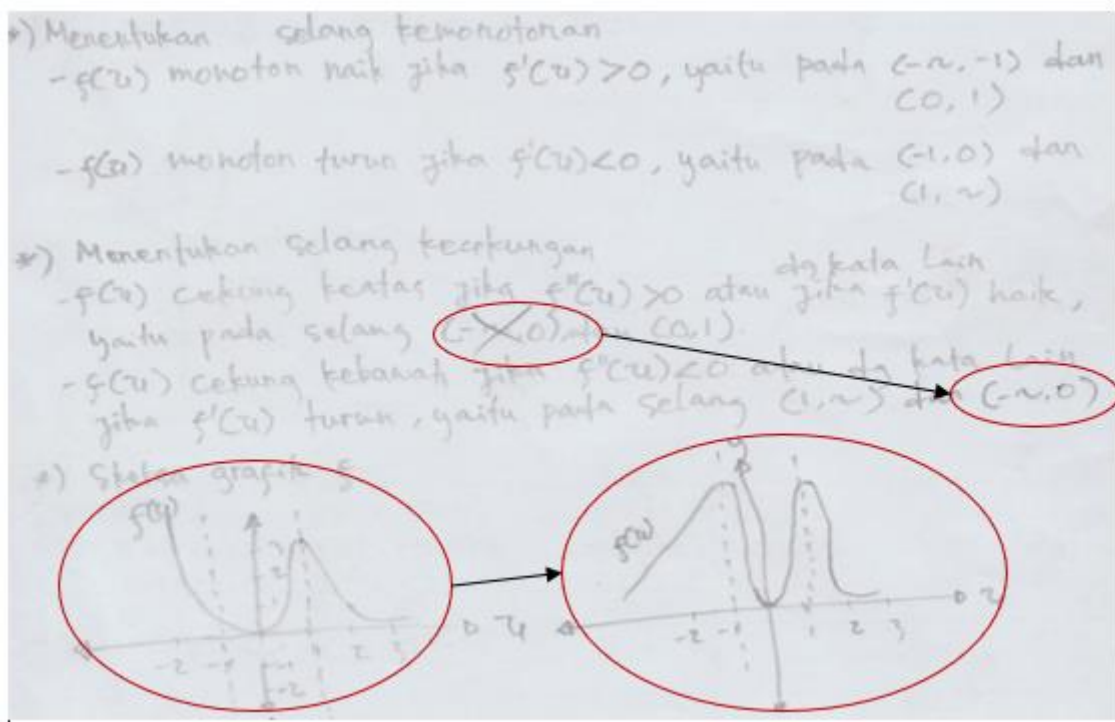 *) Menentukan selang kemonotonan
- f(x) monoton naik jika f'(x) > 0, yaitu pada (-~, -1) dan
(0, 1)
- f(x) monoton turun jika f'(x) < 0, yaitu pada (-1, 0) dan
(1, ~)
*) Menentukan selang kecekungan
dg kata Lain
- f(x) cekung keatas jika f"(x) > 0 atau jika f'(x) naik,
yaitu pada selang (0, 1).
- f(x) cekung kebawah jika f"(x) < 0 atau dg kata Lain
jika f'(x) turun, yaitu pada selang (1, ~) dan (-~, 0)
*) Sketsa grafik f
f(x) y f(x)
-2 -1 1 2 3 x -2 -1 1 2 3 x
-1
-2